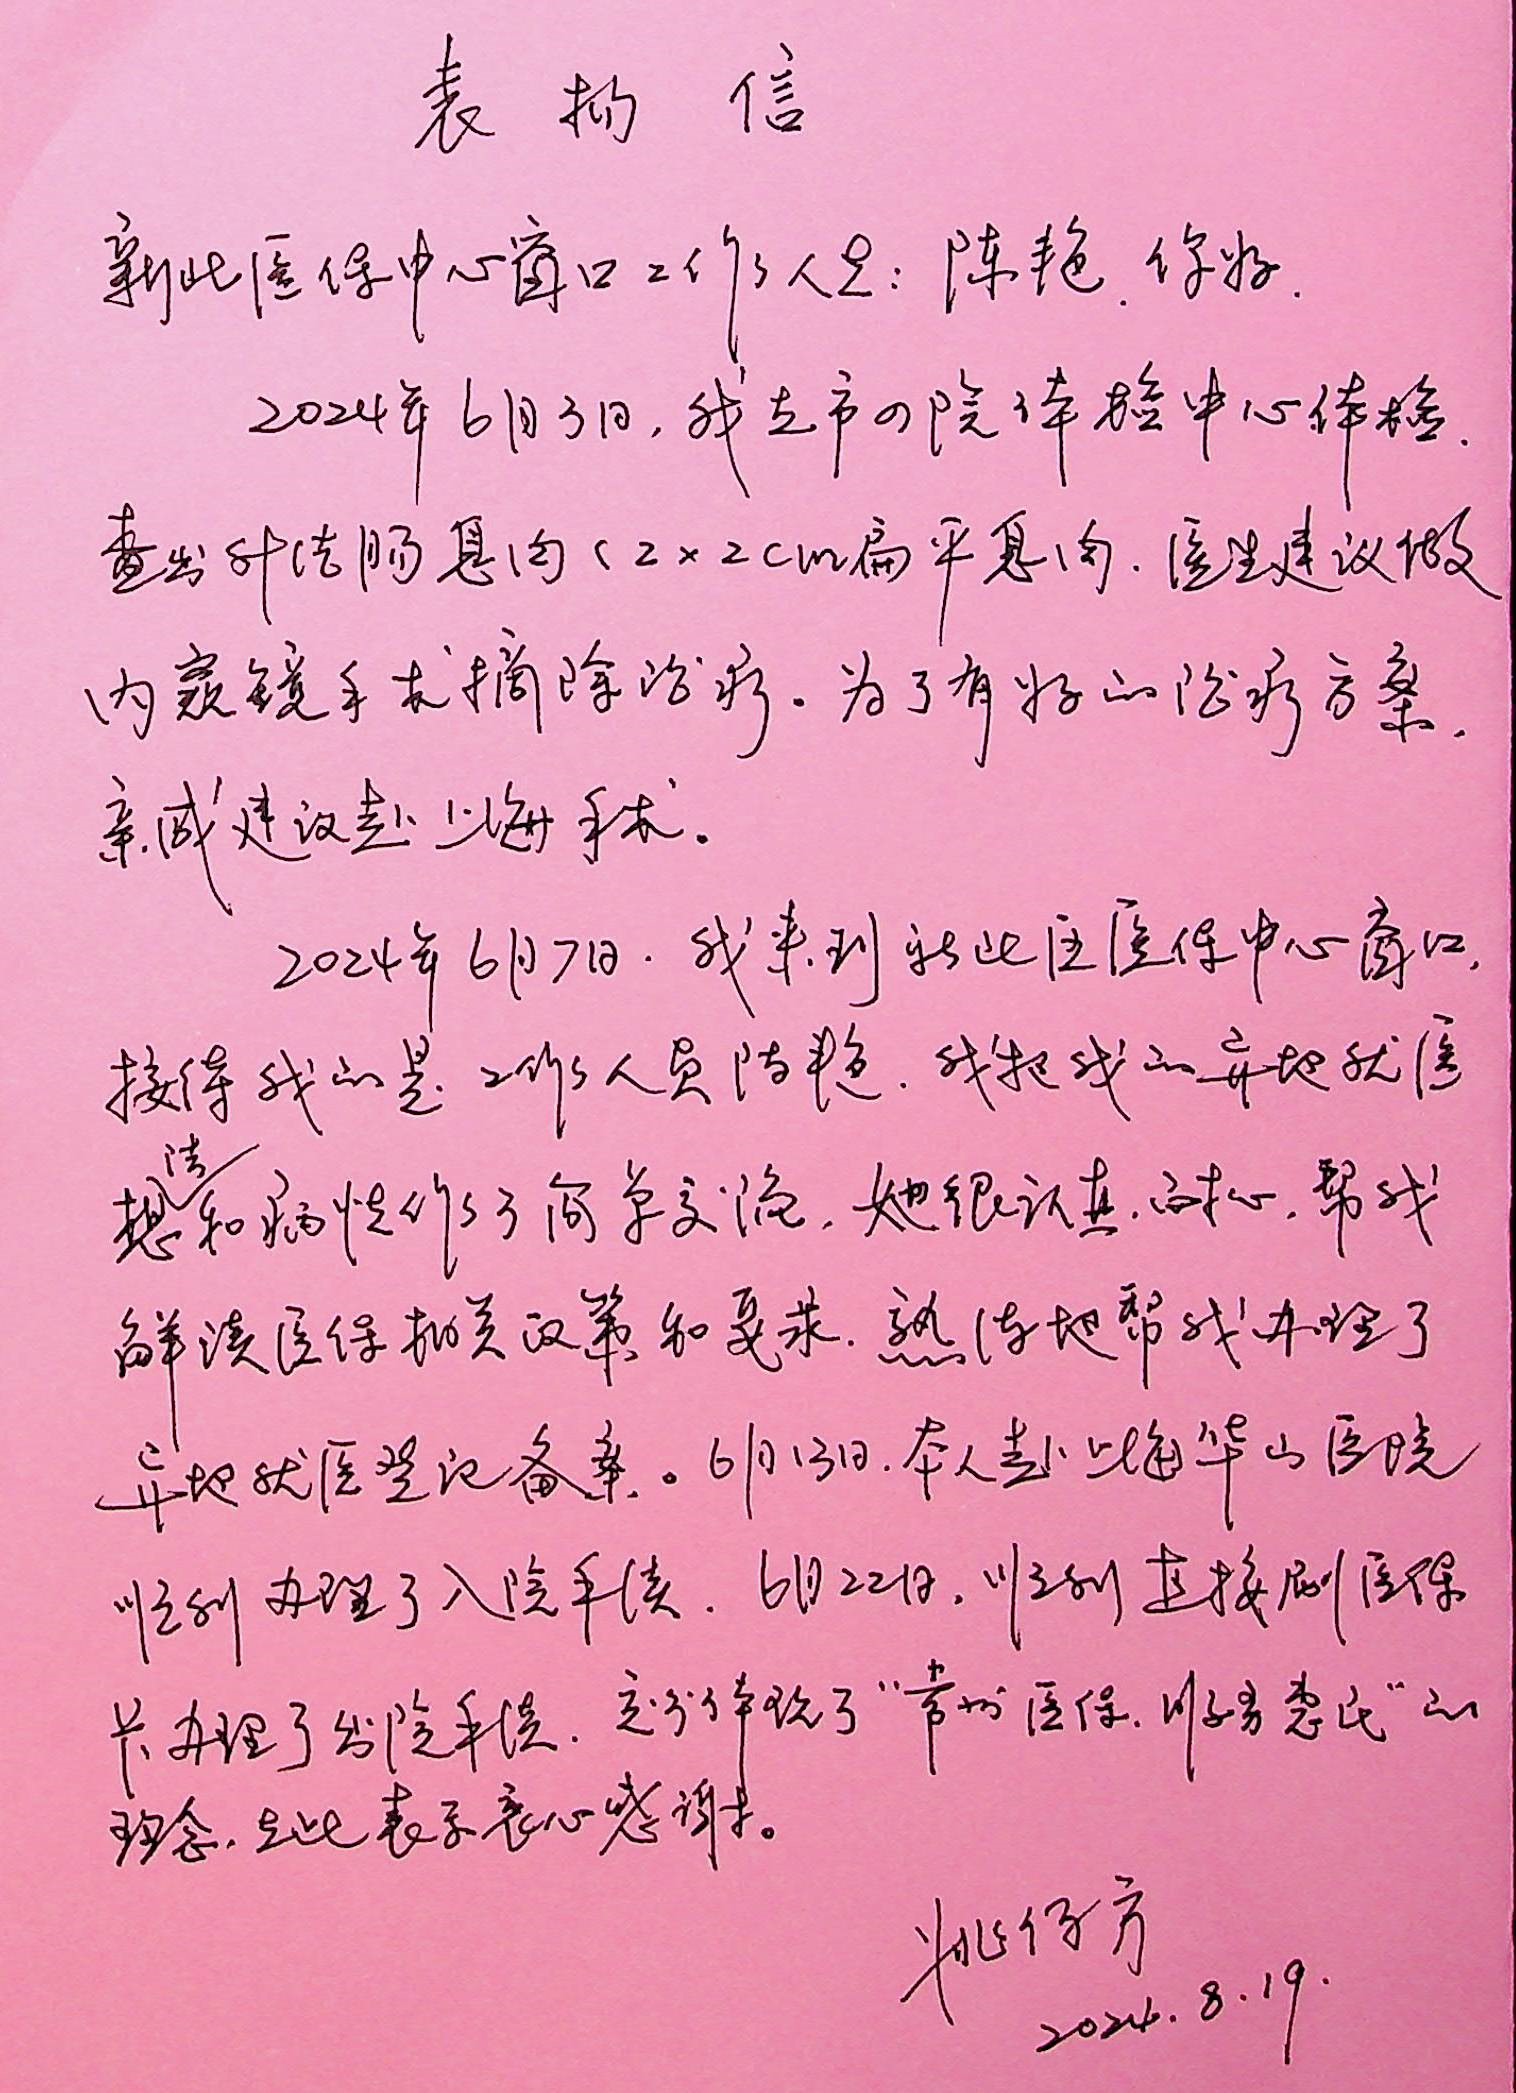 表扬信
新北医保中心窗口工作人员：陈艳.你好.
2024年6月3日，我去市四院体检中心体检.
查出升结肠息肉（2×2cm扁平息肉.医生建议做
内窥镜手术摘除治疗。为了有好的治疗方案，
亲戚建议赴上海手术。
2024年6月7日.我来到新北区医保中心窗口，
接待我的是工作人员陈艳.我把我的异地就医
想法和病情作了简单交流，她很认真.耐心.帮我
解读医保相关政策和要求.热情地帮我办理了
异地就医登记备案。6月13日.本人赴上海华山医院
顺利办理了入院手续.6月22日，顺利直接刷医保
卡办理了出院手续.充分体现了“常州医保.服务惠民”的
理念.在此表示衷心感谢。
姚仔方
2024.8.19.